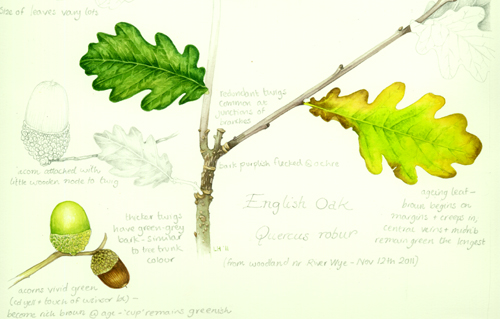 Size of leaves vary lots
redundant twigs
common at
junctions of
branches
acorn attached with
little wooden node to twig
bark purplish flecked & active
English Oak
Quercus robur
(from woodland nr River Wye - Nov 12th 2011)
thicker twigs
have green-grey
bark - similar
to the trunk
colour
ageing leaf -
brown begins on
margins & creeps in,
central veins & midrib
remain green the longest
acorns vivid green
(edges + touch of
become rich brown @ age - 'cup' remains greenish